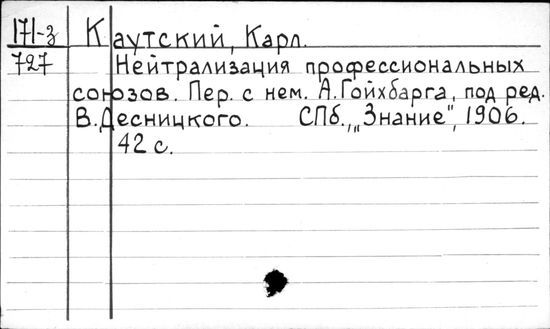 171-з Каутский, Карл.
727 Нейтрализация профессиональных
союзов. Пер. с нем. А.Гойхбарга, под ред.
В.Десницкого. СПб., „Знание", 1906.
42 с.